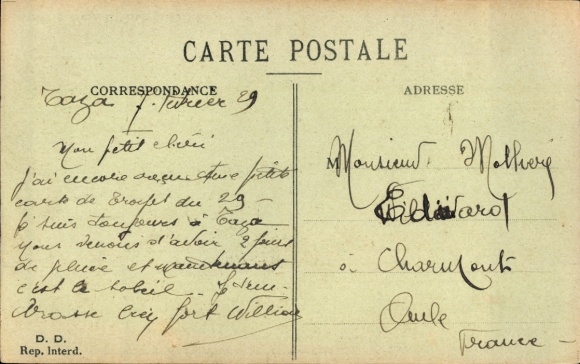 CARTE POSTALE
CORRESPONDANCE
Taza 7 février 29
Mon petit chéri
J'ai encore reçu une petite
carte de du 29 —
Je suis toujours à Taza
nous venons d'avoir 2 jours
de pluie et maintenant
c'est le soleil. Je t'em-
brasse bien fort William
D. D.
Rep. Interd.
ADRESSE
Monsieur
à Charmont
Aube
France —